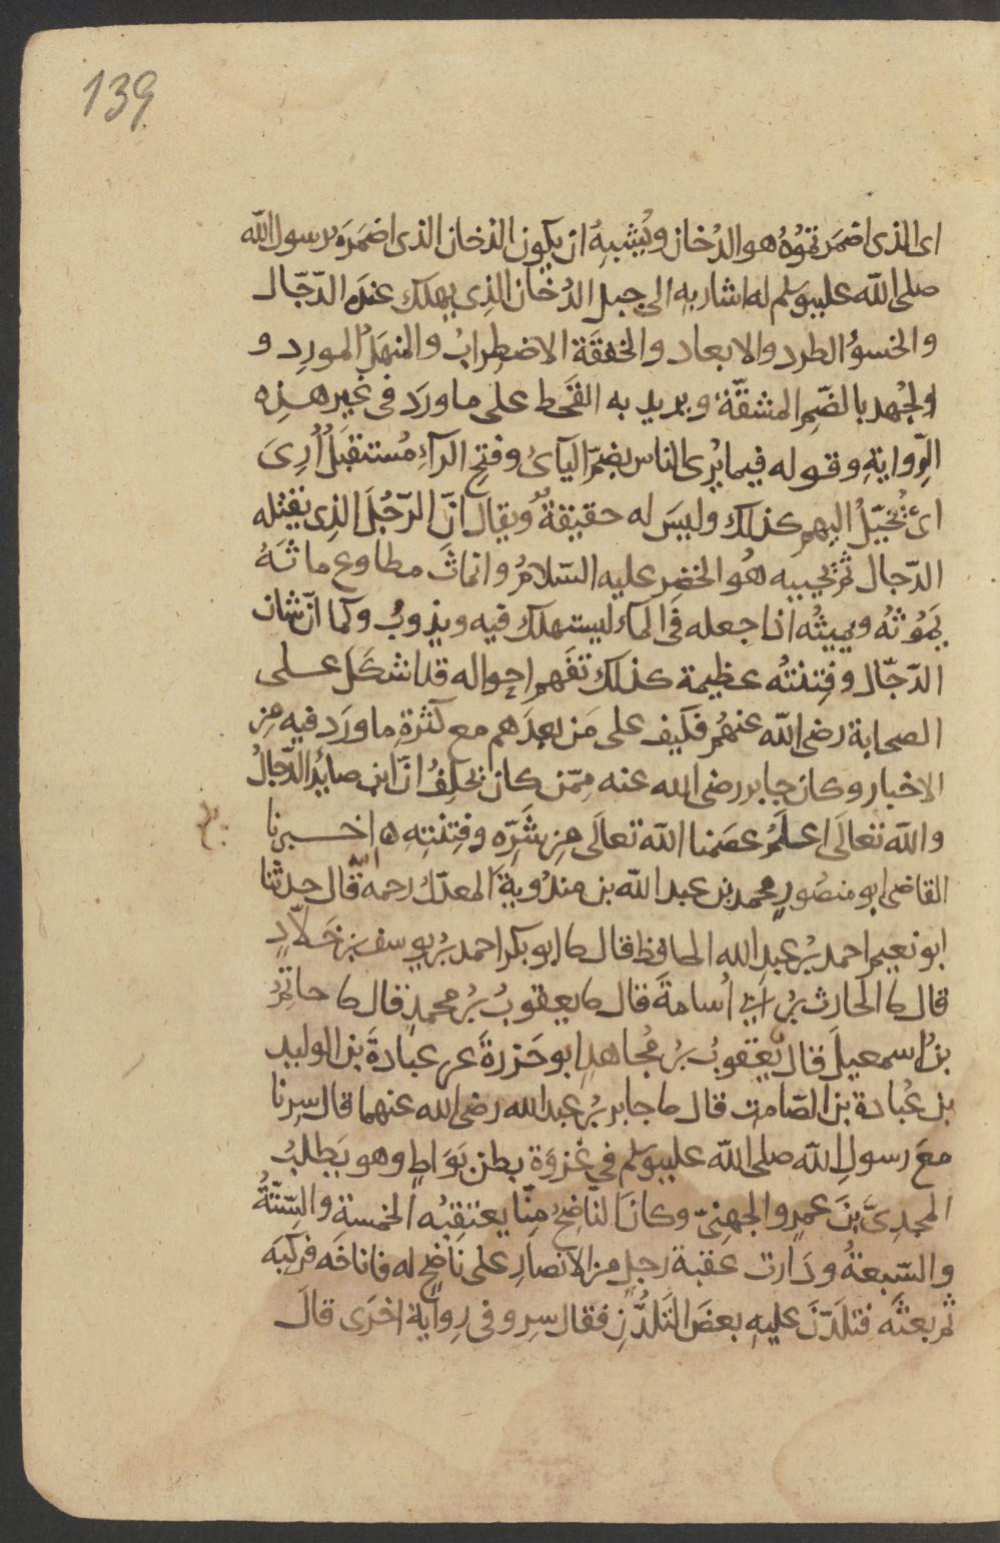 139
اى الذى اضمر تفوّه هو الدُخان ويُشبِهُ ان يكون الدخان الذى اضمَرَه رسول الله
صلى الله عليه وسلم له اشار به الى جبل الدُخان الذِى يهلك عنده الدّجّال
والخسوُ الطرد والابعاد والخفقَة الاضطِرابُ والمنهَلُ المورِد و
الجُهد بالضّمِ المشقّة ويريد به القَحط على ما ورَد فى غير هذِه
الرّوايةِ وقوله فيما يُرى الناس بضمّ اليآءِ وفتحِ الرآءِ مُستقبَلُ اُرِىَ
اى يُخيّلُ اليهم كذلك وليسَ له حقيقةٌ ويقال انّ الرّجُلَ الذِى يقتله
الدّجال ثم يحييه هُو الخضِر عليه السّلامُ وانماثَ مطاوع ماثَهُ
يَمُوثهُ ويميثُه اذا جعله فى الماء ليستهلك فيه ويذوبُ وكما انّ شان
الدّجّال وفِتنتُه عظيمة كذلك تفَهم احواله قد اشكَلَ على
الصحابة رضى الله عنهُم فكيف على مَن بعدَهم مع كثرةِ ما ورَد فيه مِن
الاخبار وكان جابر رضى الله عنه مِمّن كان يحلِفُ انّ ابن صائِد الدّجالُ
والله تعالَى اعلَمُ عصَمنا الله تعالَى مِن شَرِّه وفِتنتِه ه اخبرنا
القاضى ابو منصُورٍ محمد بن عبد الله بن مندُويةَ المعدّل رحمه الله قال حدثنا
ابو نعيم احمد بنُ عبدِ الله الحافظ قال ثا ابو بكر احمد بنُ يوسف بن خلّادٍ
قال ثا الحارث بنُ ابى اُسامةَ قال ثا يعقوبُ بنُ محمدٍ قال ثا حاتمُ
بنُ اسمعيلَ قال يعقوبُ بنُ مُجاهدٍ ابو حَزرةَ عن عبادةَ بن الوليد
بن عُبادة بن الصّامت قال ثا جابر بنُ عبد الله رضى الله عنهما قال سِرنا
معَ رسولِ الله صلى الله عليه وسلم فى غزوَة بطن بَوَاطٍ وهو يَطلبُ
المجدِىَّ بنَ عمرٍو الجهنىّ وكانَ النّاضِحُ مِنّا يعتقِبُه الخمسة والسِتّةُ
والسّبعةُ ودَارت عقبة رجلٍ من الانصارِ على ناضحٍ له فاناخَه فركبَه
ثم بعثَه فتلَدّنَ عليهِ بعضَ التَلَدُّنِ فقال سِر وفى رِواية اخرَى قالَ